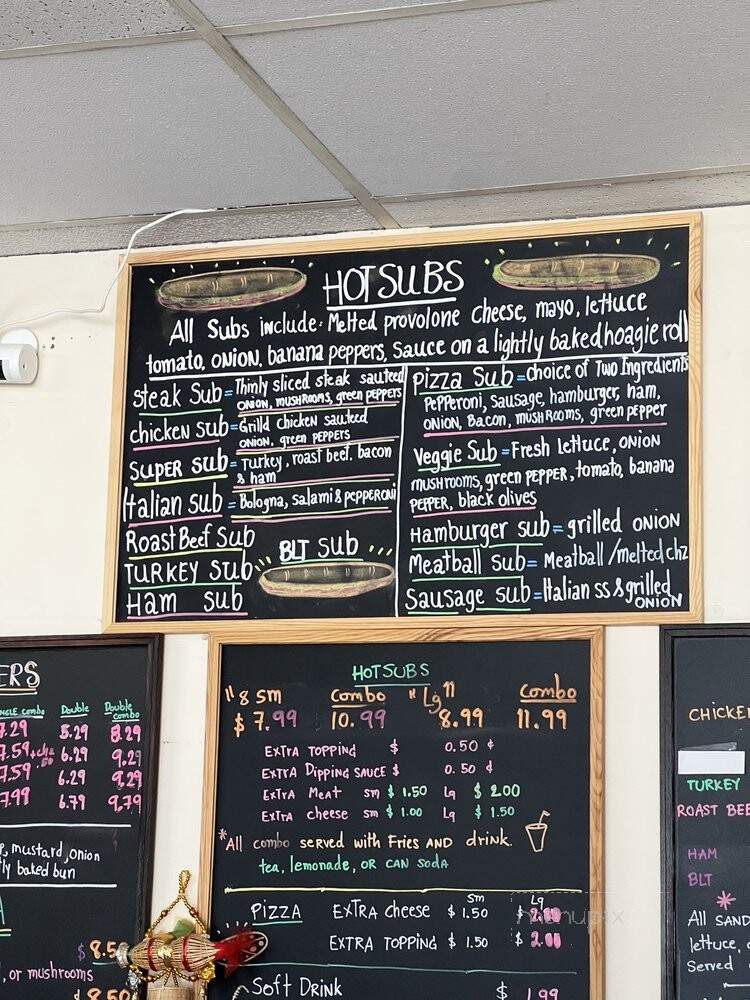 HOT SUBS
All Subs include: Melted provolone cheese, mayo, lettuce
tomato, onion, banana peppers, sauce on a lightly baked hoagie roll
Steak Sub = Thinly sliced steak sauteed
onion, mushrooms, green peppers
chicken sub = Grilld chicken sauteed
onion, green peppers
super sub = Turkey, roast beef, bacon
& ham
Italian sub = Bologna, salami & pepperoni
Roast Beef Sub
Turkey Sub
Ham Sub
BLT Sub
Pizza Sub = choice of Two Ingredients
Pepperoni, sausage, hamburger, ham,
onion, Bacon, mushrooms, green pepper
Veggie Sub = Fresh lettuce, onion
mushrooms, green pepper, tomato, banana
pepper, black olives
Hamburger sub = grilled onion
Meatball sub = Meatball / melted chz
Sausage sub = Italian ss & grilled
onion
ERS
NGLE combo Double Double combo
7.29 5.29 8.29
7.59 6.29 9.29
7.59 6.29 9.29
7.99 6.79 9.79
, mustard, onion
ly baked bun
A
$ 8.50
, or mushrooms
$ 8.50
HOT SUBS
"8 sm combo "Lg" combo
$ 7.99 10.99 8.99 11.99
Extra topping $ 0.50 ¢
Extra Dipping sauce $ 0.50 ¢
Extra Meat sm $ 1.50 Lg $ 2.00
Extra cheese sm $ 1.00 Lg $ 1.50
*All combo served with Fries and drink.
tea, lemonade, or can soda
Sm Lg
Pizza Extra cheese $ 1.50 $ 2.00
Extra topping $ 1.50 $ 2.00
Soft Drink $ 1.99
menupix
CHICKEN
TURKEY
ROAST BEE
HAM
BLT
*
All SAND
lettuce,
Served